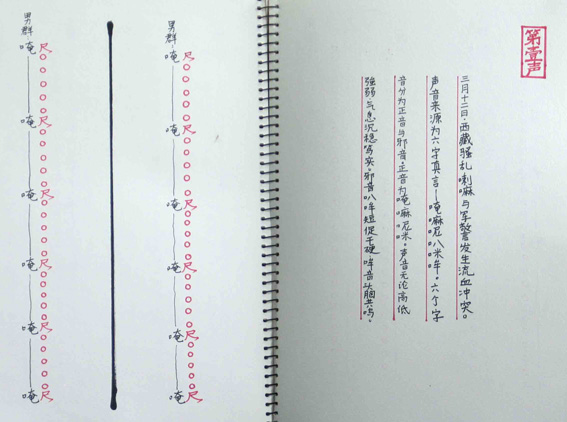 第壹声
三月十二日，西藏骚乱喇嘛与军警发生流血冲突。
声音来源为六字真言——唵麻尼八米吽。六个字
音分为正音与邪音。正音为唵麻尼米。声音无论高低
强弱气息沉稳笃实。邪音八吽短促干硬 吽音头腔共鸣。
男群：
尺○○○○○尺○○○○○尺○○○○尺○○○○尺○○○○尺
唵——唵——唵——唵——唵——唵
男群：
尺○○○○○尺○○○○○尺○○○○尺○○○○尺○○○○尺
唵——唵——唵——唵——唵——唵